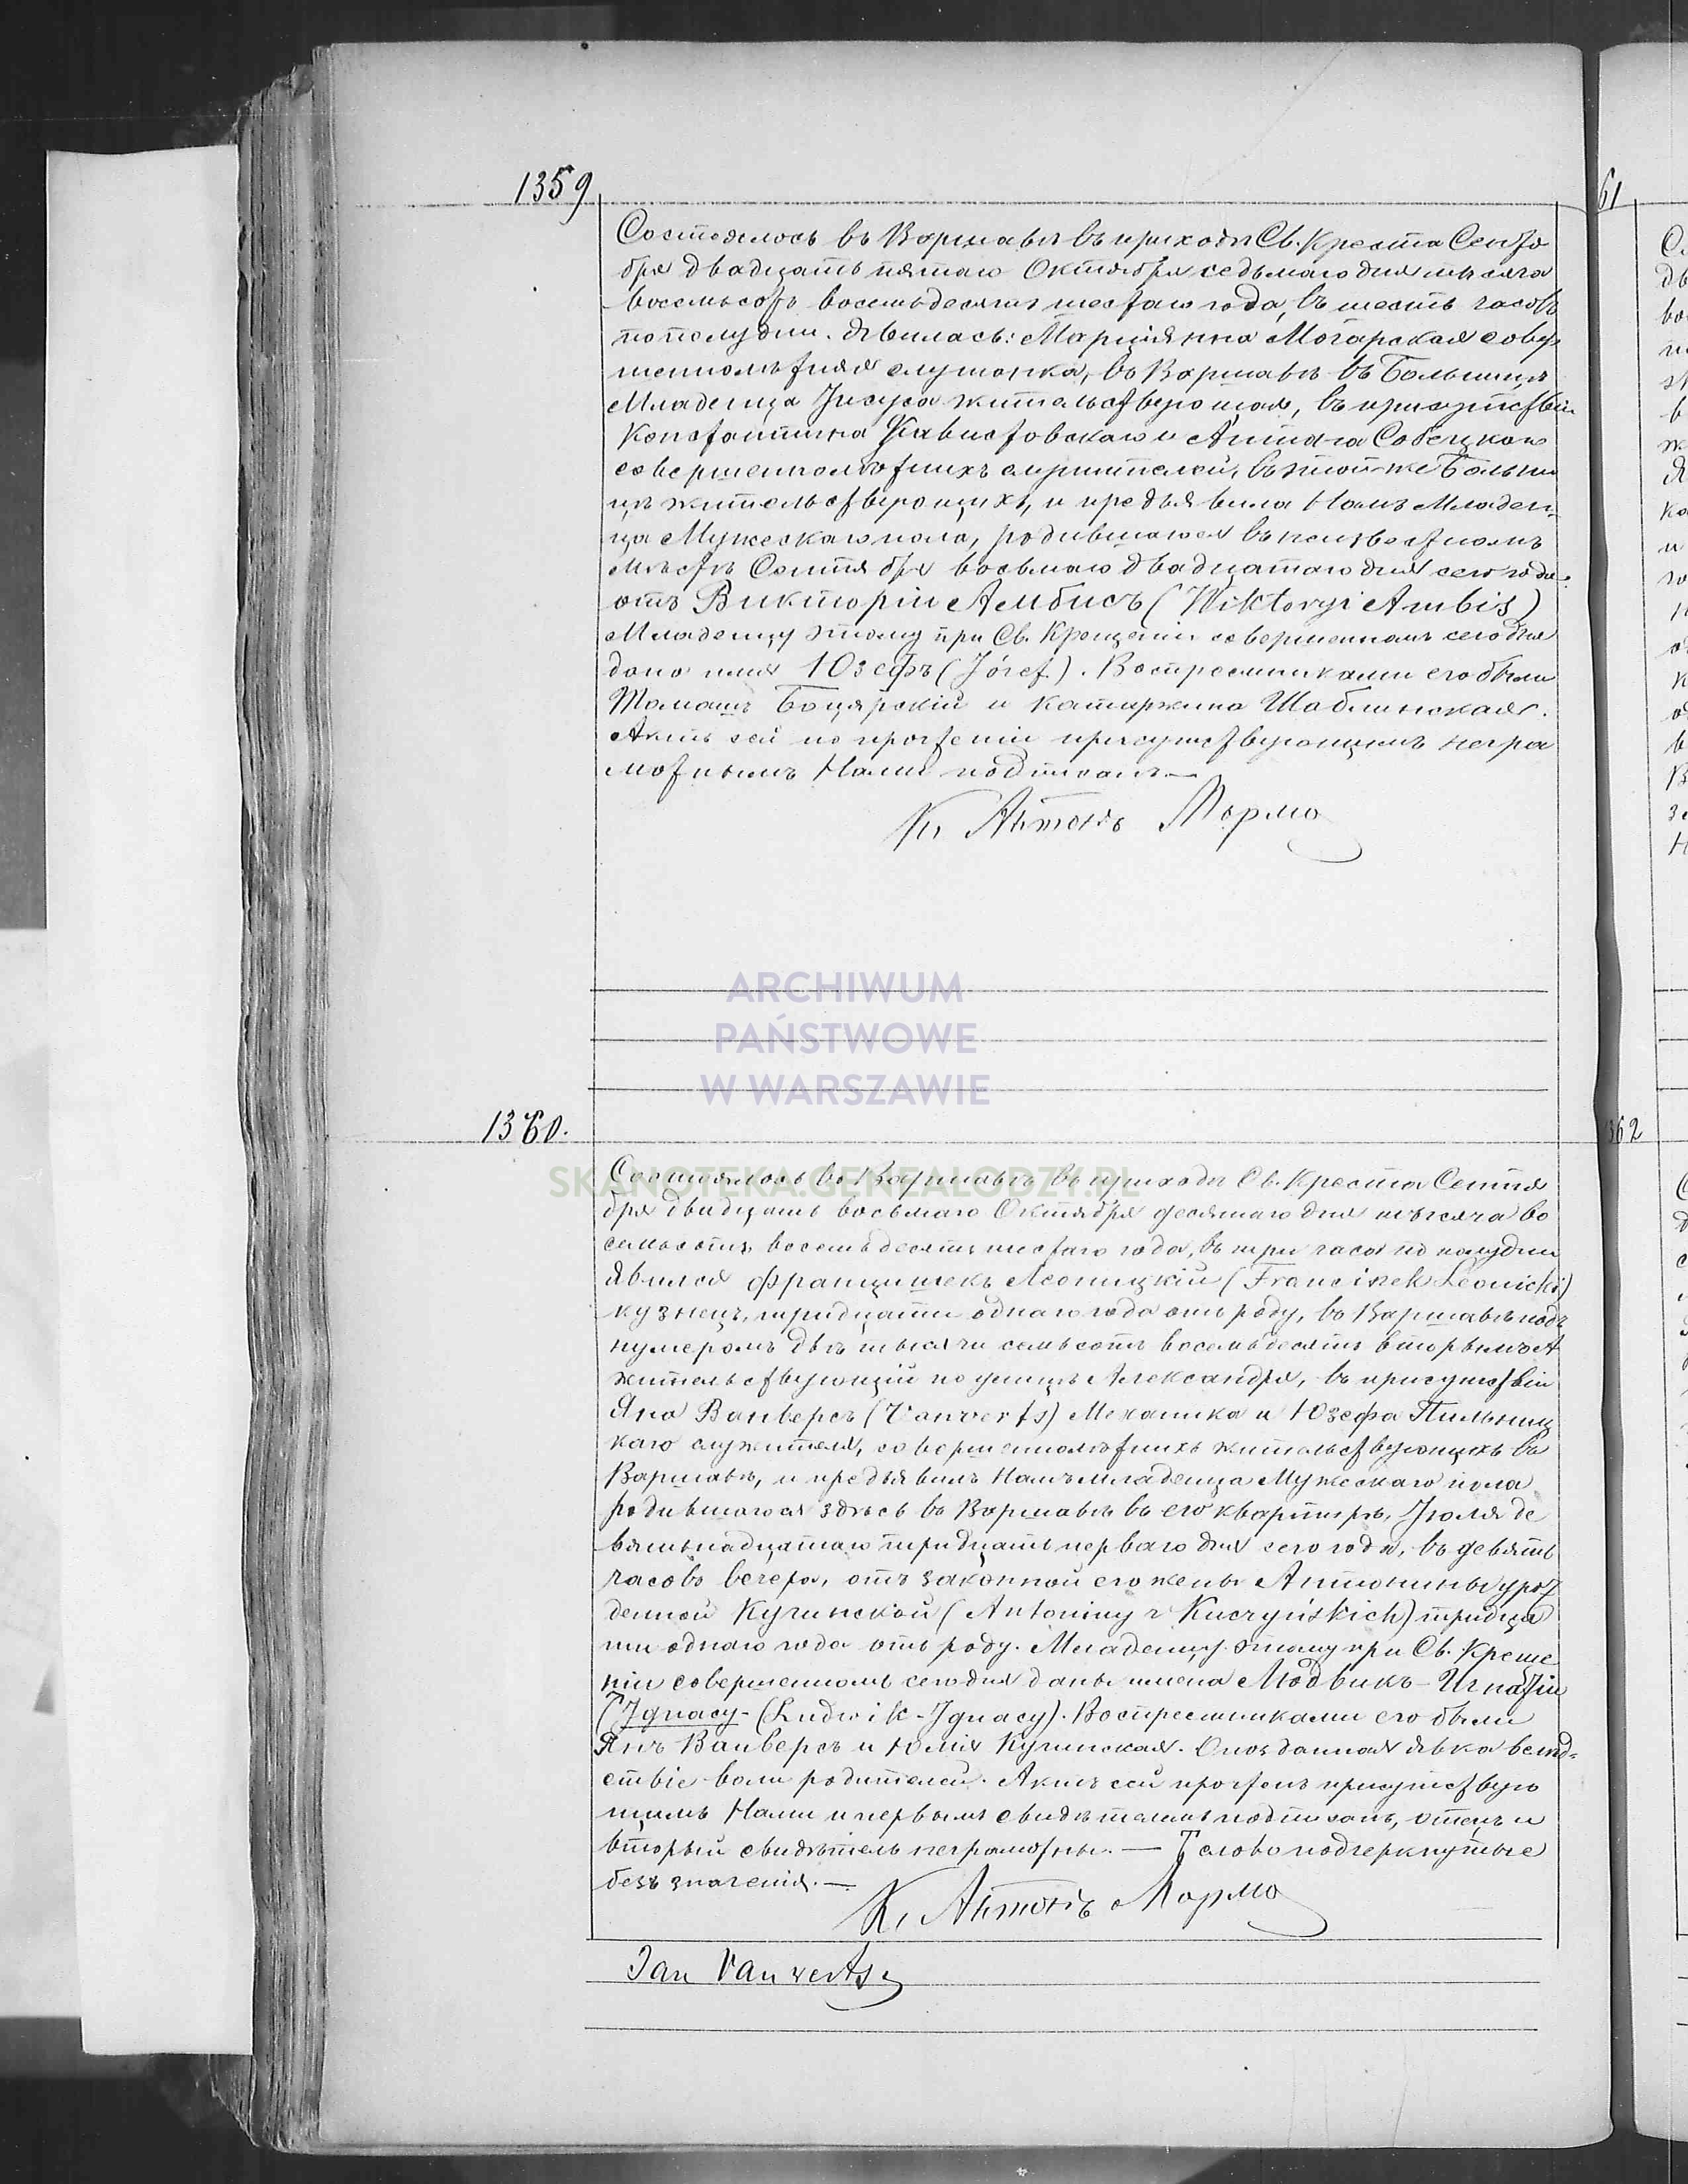 1359
Состоялось въ Варшавѣ въ приходѣ Св. Креста Сентя
бря двадцать пятаго Октября седьмаго дня тысяча
восемьсотъ восемьдесятъ шестаго года, въ шесть часовъ
пополудни. Явилась: Марціянна Могарская совер
шеннолѣтняя служанка, въ Варшавѣ въ Больницѣ
Младенца Іисуса жительствующая, въ присутствіи
Константина Собецкаго
совершеннолѣтнихъ служителей, въ этой-же Больни
цѣ жительствующихъ, и предъявила Намъ Младен-
ца Мужескаго пола, родившагося въ неизвѣстномъ
мѣстѣ Сентября восьмаго двадцатаго дня сего года
отъ Викторіи Амбисъ (Wiktoryi Ambis)
Младенцу этому при Св. Крещеніи совершенномъ сего дня
дано имя Юзефъ (Józef). Воспреемниками его были
Томашъ Боцярскій и Катаржина Шаблинская.
Актъ сей по прочтеніи присутствующимъ негра
мотнымъ Нами подписанъ.—
Кс Антонъ Мормо
ARCHIWUM
PAŃSTWOWE
W WARSZAWIE
1360.
SKANOTEKA.GENEALODZY.PL
Состоялось въ Варшавѣ въ приходѣ Св. Креста Сентя
бря двадцать восьмаго Октября десятаго дня тысяча во
семьсотъ восемьдесятъ шестаго года, въ три часа по полудни
явился Францишекъ Леоницкій (Franciszek Leonicki)
кузнецъ, тридцати одного года отъ роду, въ Варшавѣ подъ
нумеромъ двѣ тысячи семьсотъ восемьдесятъ вторымъ А
жительствующій по улицѣ Александря, въ присутствіи
Яна Ванверсъ (Vanverts) Механика и Юзефа Пильниц
каго служителя, совершеннолѣтнихъ жительствующихъ въ
Варшавѣ, и предъявилъ Намъ младенца Мужескаго пола
родившагося здѣсь въ Варшавѣ въ его квартирѣ, Іюля де
вятнадцатаго тридцать перваго дня сего года, въ девять
часовъ вечера, отъ законной его жены Антонины урож
денной Кучинской (Antoniny z Kuczyńskich) тридца
ти одного года отъ роду. Младенцу этому при Св. Креще
ніи совершенномъ сего дня даны имена Людвикъ-Игнатій
(Ignacy- (Ludwik-Ignacy). Воспреемниками его были
Янъ Ванверсъ и Юлія Кучинская. Опозданная явка вслѣд-
ствіе воли родителей. Актъ сей прочтенъ присутствую
щимъ Нами и первымъ свидѣтелемъ подписанъ, отецъ и
вторый свидѣтель неграмотны. — Слово подчеркнутые
безъ значенія.—
Кс Антонъ Мормо
Jan Vanverts
61
362